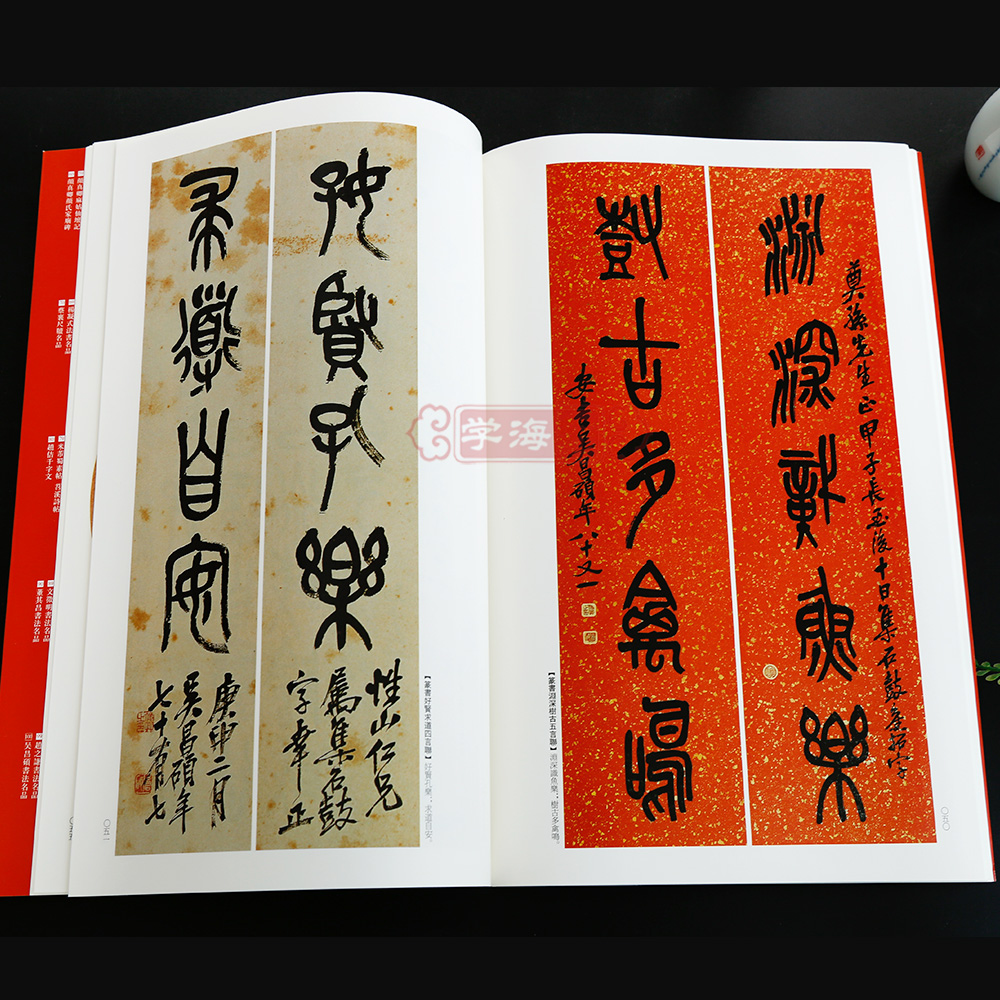 淵深識魚樂
奠孫先生正甲子長至後十日集石鼓
樹古多禽鳴
安吉吳昌碩年八十又一
【篆書淵深樹古五言聯】淵深識魚樂;樹古多禽鳴。
〇五〇
好賢孔樂
性山仁兄
屬集石鼓
字幸正
求道自安
庚申二月
吳昌碩年
七十有七
【篆書好賢求道四言聯】好賢孔樂;求道自安。
〇五一
〇五
顏真卿麻姑仙壇記
顏真卿顏氏家廟碑
楊凝式法書名品
蔡襄尺牘名品
米芾蜀素帖 苕溪詩帖
趙佶千字文
文徵明書法名品
董其昌書法名品
趙之謙書法名品
吳昌碩書法名品
学海